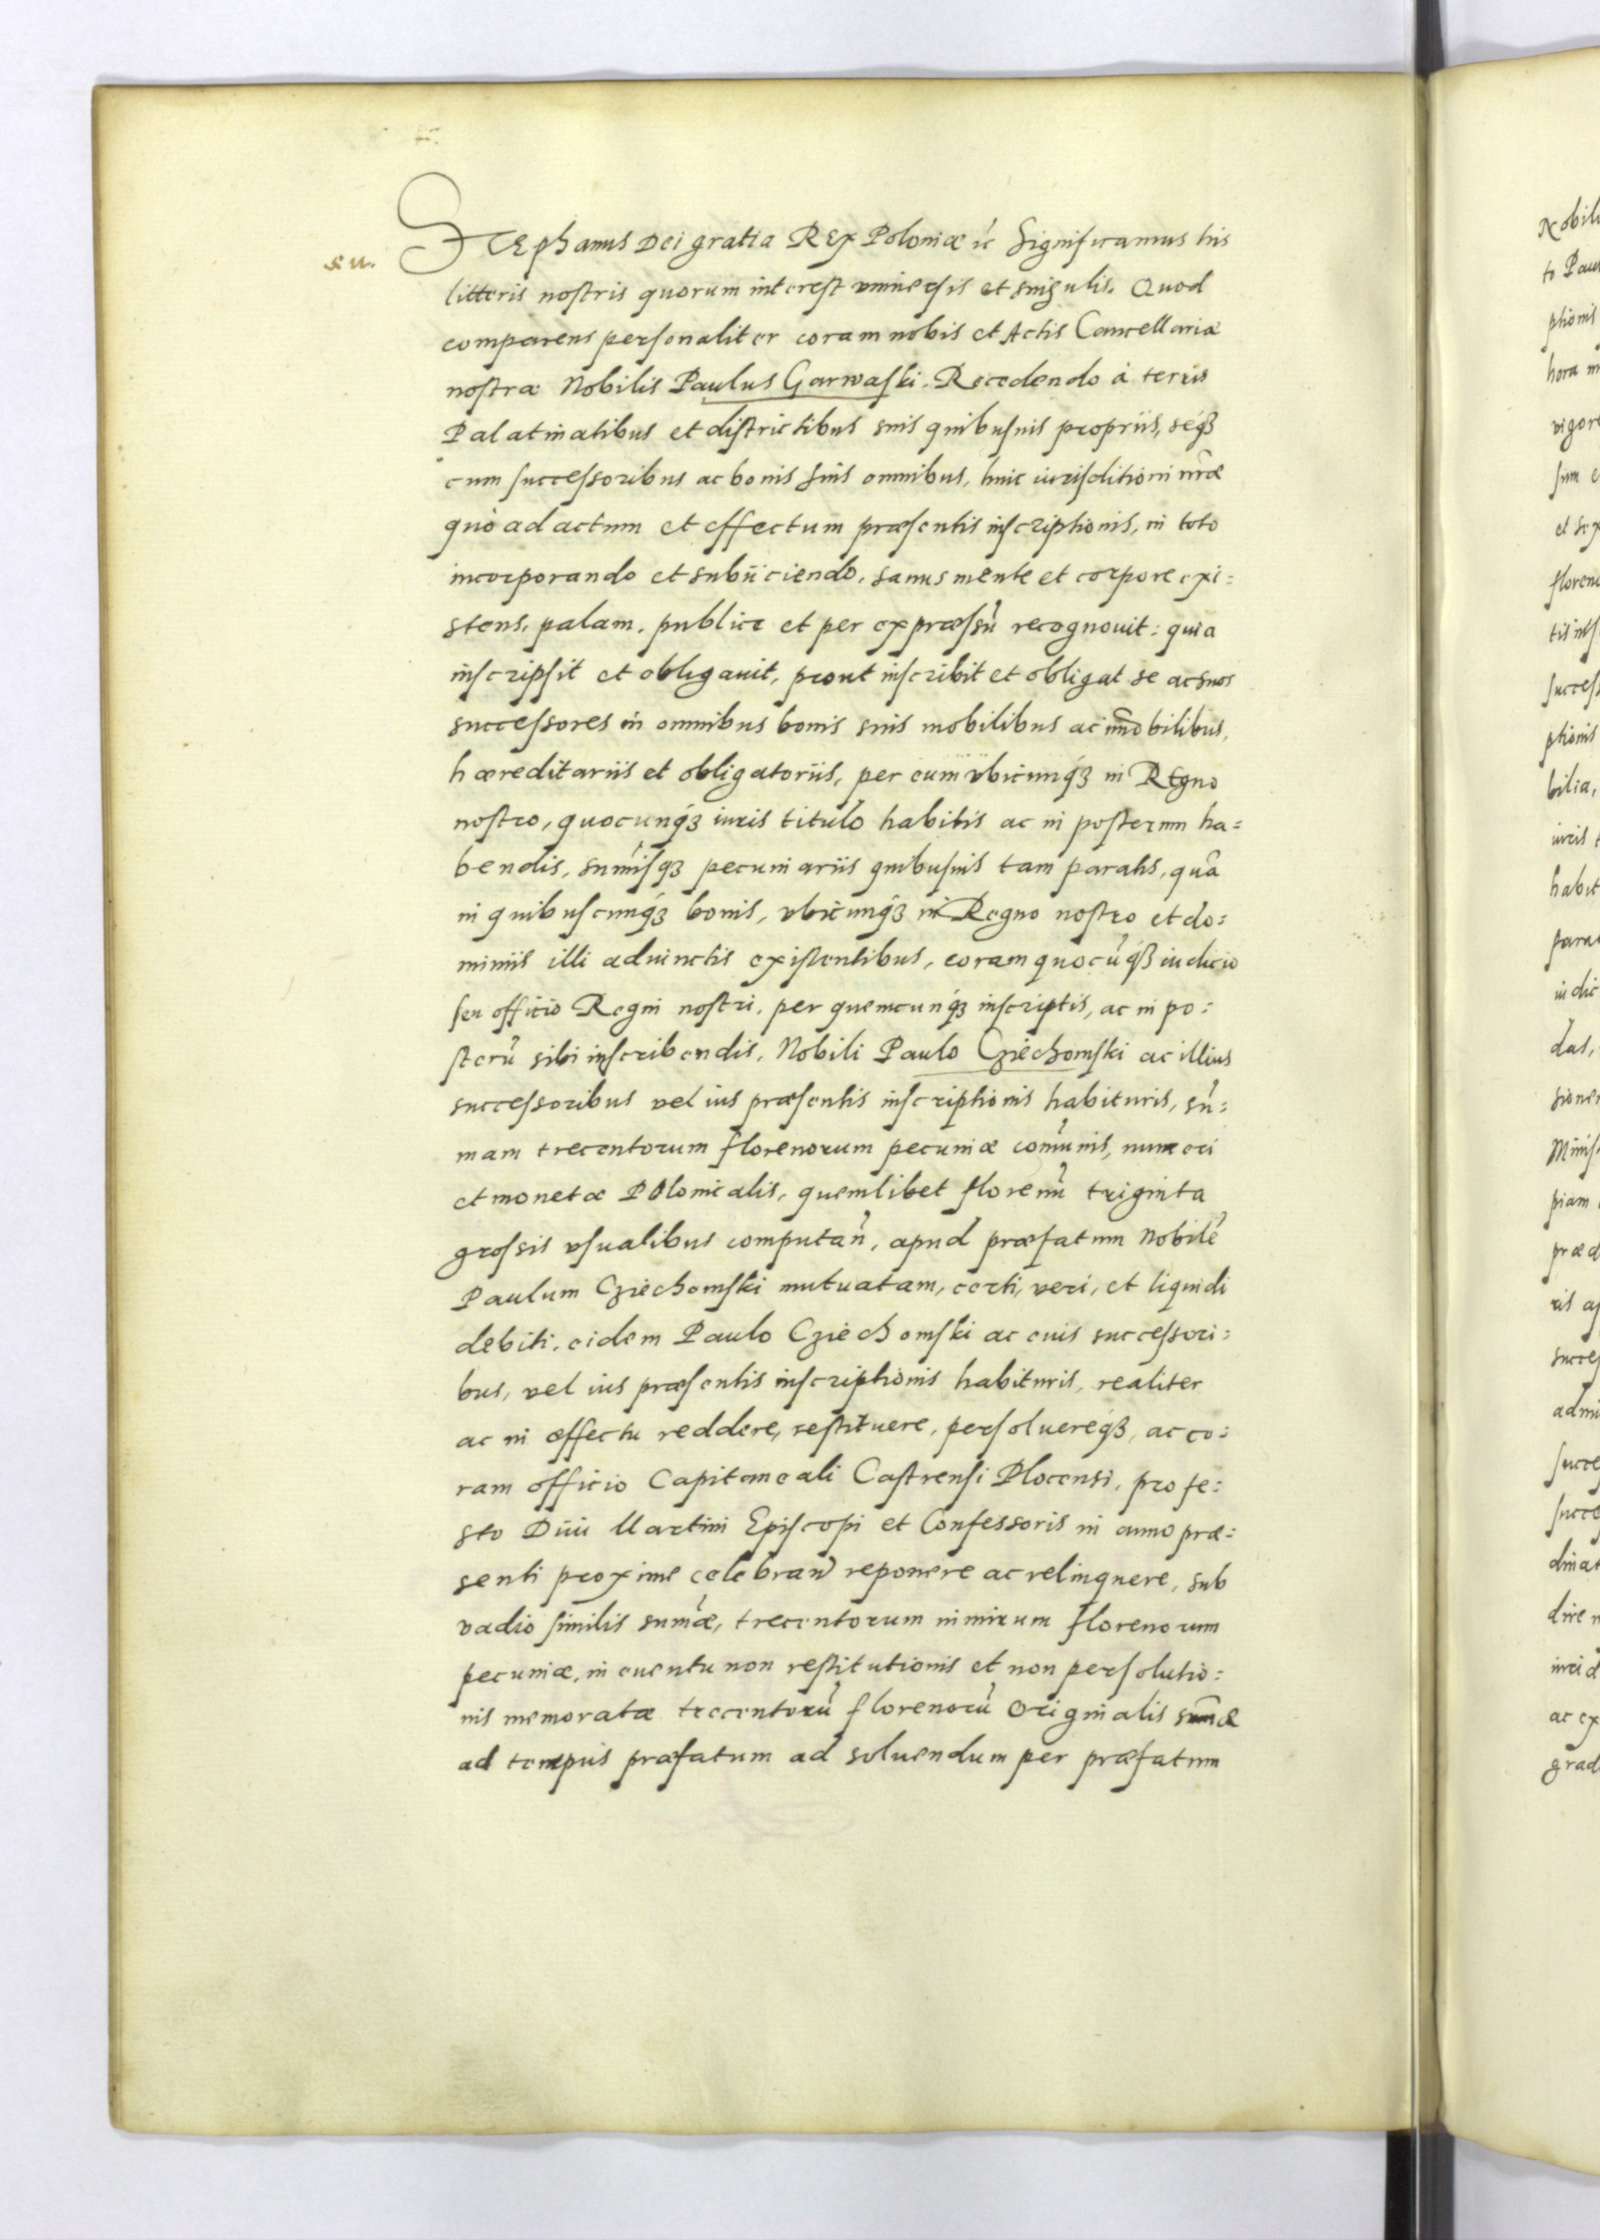 Stephanus Dei gratia Rex Poloniæ ꝛc Significamus his
litteris nostris quorum interest vniuersis et singulis. Quod
comparens personaliter coram nobis et Actis Cancellariæ
nostræ Nobilis Paulus Garwaski. Recedendo à terris
Palatinatibus et districtibus suis quibusuis propriis, seq́ꝫ
cum successoribus ac bonis suis omnibus, huic iurisditioni nr̃æ
quò ad actum et effectum præsentis inscriptionis, in toto
incorporando et subiiciendo, sanus mente et corpore exi:
stens, palam, publice et per expræssũ recognouit: quia
inscripsit et obligauit, prout inscribit et obligat se ac suos
successores in omnibus bonis suis mobilibus ac im̃obilibus,
hæreditariis et obligatoriis, per eum vbicunq́ꝫ in Regno
nostro, quocunq́ꝫ iuris titulo habitis ac in posterum ha=
bendis, sum̃isqꝫ pecuniariis quibusuis tam paratis, quã
in quibuscunq́ꝫ bonis, vbicunq́ꝫ in Regno nostro et do:
miniis illi adiunctis existentibus, coram quocũq́ꝫ iudicio
seu officio Regni nostri, per quemcunq́ꝫ inscriptis, ac in po:
sterũ sibi inscribendis, Nobili Paulo Cziechomski ac illius
successoribus vel ius præsentis inscriptionis habituris, sũ:
mam trecentorum florenorum pecuniæ com̃unis, numeri
et monetæ Polonicalis, quemlibet florenũ triginta
grossis vsualibus computan̄, apud præfatum Nobilẽ
Paulum Cziechomski mutuatam, certi, veri, et liquidi
debiti, eidem Paulo Cziechomski ac euis successori:
bus, vel ius præsentis inscriptionis habituris, realiter
ac in effectu reddere, restituere, persoluereq́ꝫ, ac co:
ram officio Capitaneali Castrensi Plocensi, pro fe:
sto Diui Martini Episcopi et Confessoris in anno præ:
senti proxime celebran̄ reponere ac relinquere, sub
vadio similis sum̃æ, trecentorum nimirum florenorum
pecuniæ, in euentu non restitutionis et non persolutio:
nis memoratæ trecentorũ florenorũ Originalis sum̃æ
ad tempus præfatum ad soluendum per præfatum